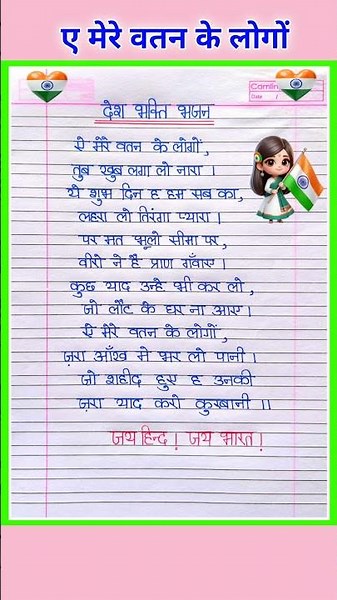 ए मेरे वतन के लोगों
Camlin
Date /
देश भक्ति भजन
ऐ मेरे वतन के लोगों,
तुब खुब लगा लो नारा ।
ये शुभ दिन ह हम सब का,
लहरा लो तिरंगा प्यारा ।
पर मत भूलो सीमा पर,
वीरो ने है प्राण गँवाए ।
कुछ याद उन्हे भी कर लो,
जो लौट के घर ना आए ।
ऐ मेरे वतन के लोगों,
ज़रा आँख मे भर लो पानी ।
जो शहीद हुए ह उनकी
ज़रा याद करो कुरबानी ।।
जय हिन्द ! जय भारत !